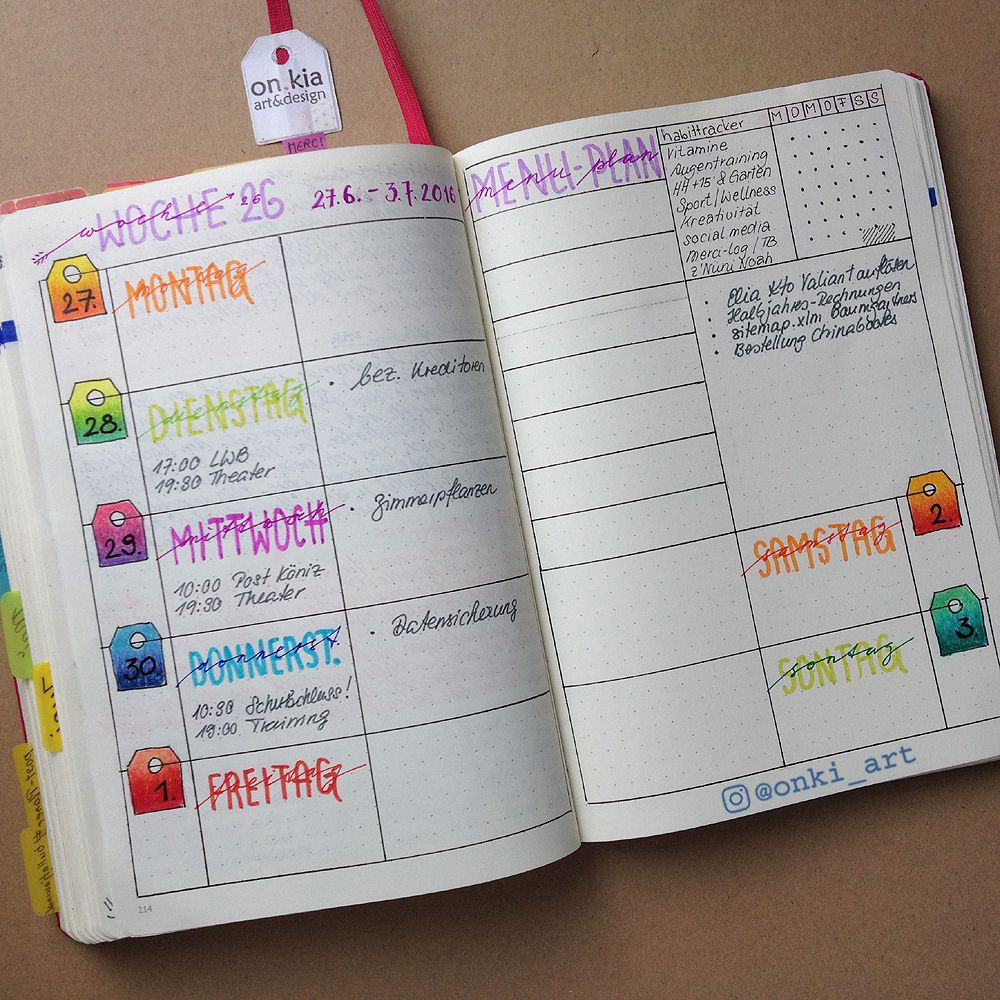 on.kia
art&design
MERCI
WOCHE 26
woche 26
27.6. - 3.7.2016
27.
MONTAG
montag
28.
DIENSTAG
dienstag
17:00 LWB
19:30 Theater
• bez. Kreditoren
29.
MITTWOCH
mittwoch
10:00 Post Köniz
19:30 Theater
• Zimmerpflanzen
30.
DONNERST.
donnerst.
10:30 Schulschluss!
19:00 Training
• Datensicherung
1.
FREITAG
freitag
214
MENU-PLAN
menu-plan
habittracker
M D M D F S S
Vitamine
Augentraining
HH +15 & Garten
Sport/Wellness
Kreativität
social media
Merci-Log/TB
z'Nüni Noah
• Elia Kto Valiant auflösen
• Halbjahres-Rechnungen
• sitemap.xlm Baumgartners
• Bestellung Chinabooks
2.
SAMSTAG
samstag
3.
SONTAG
sontag
@onki_art